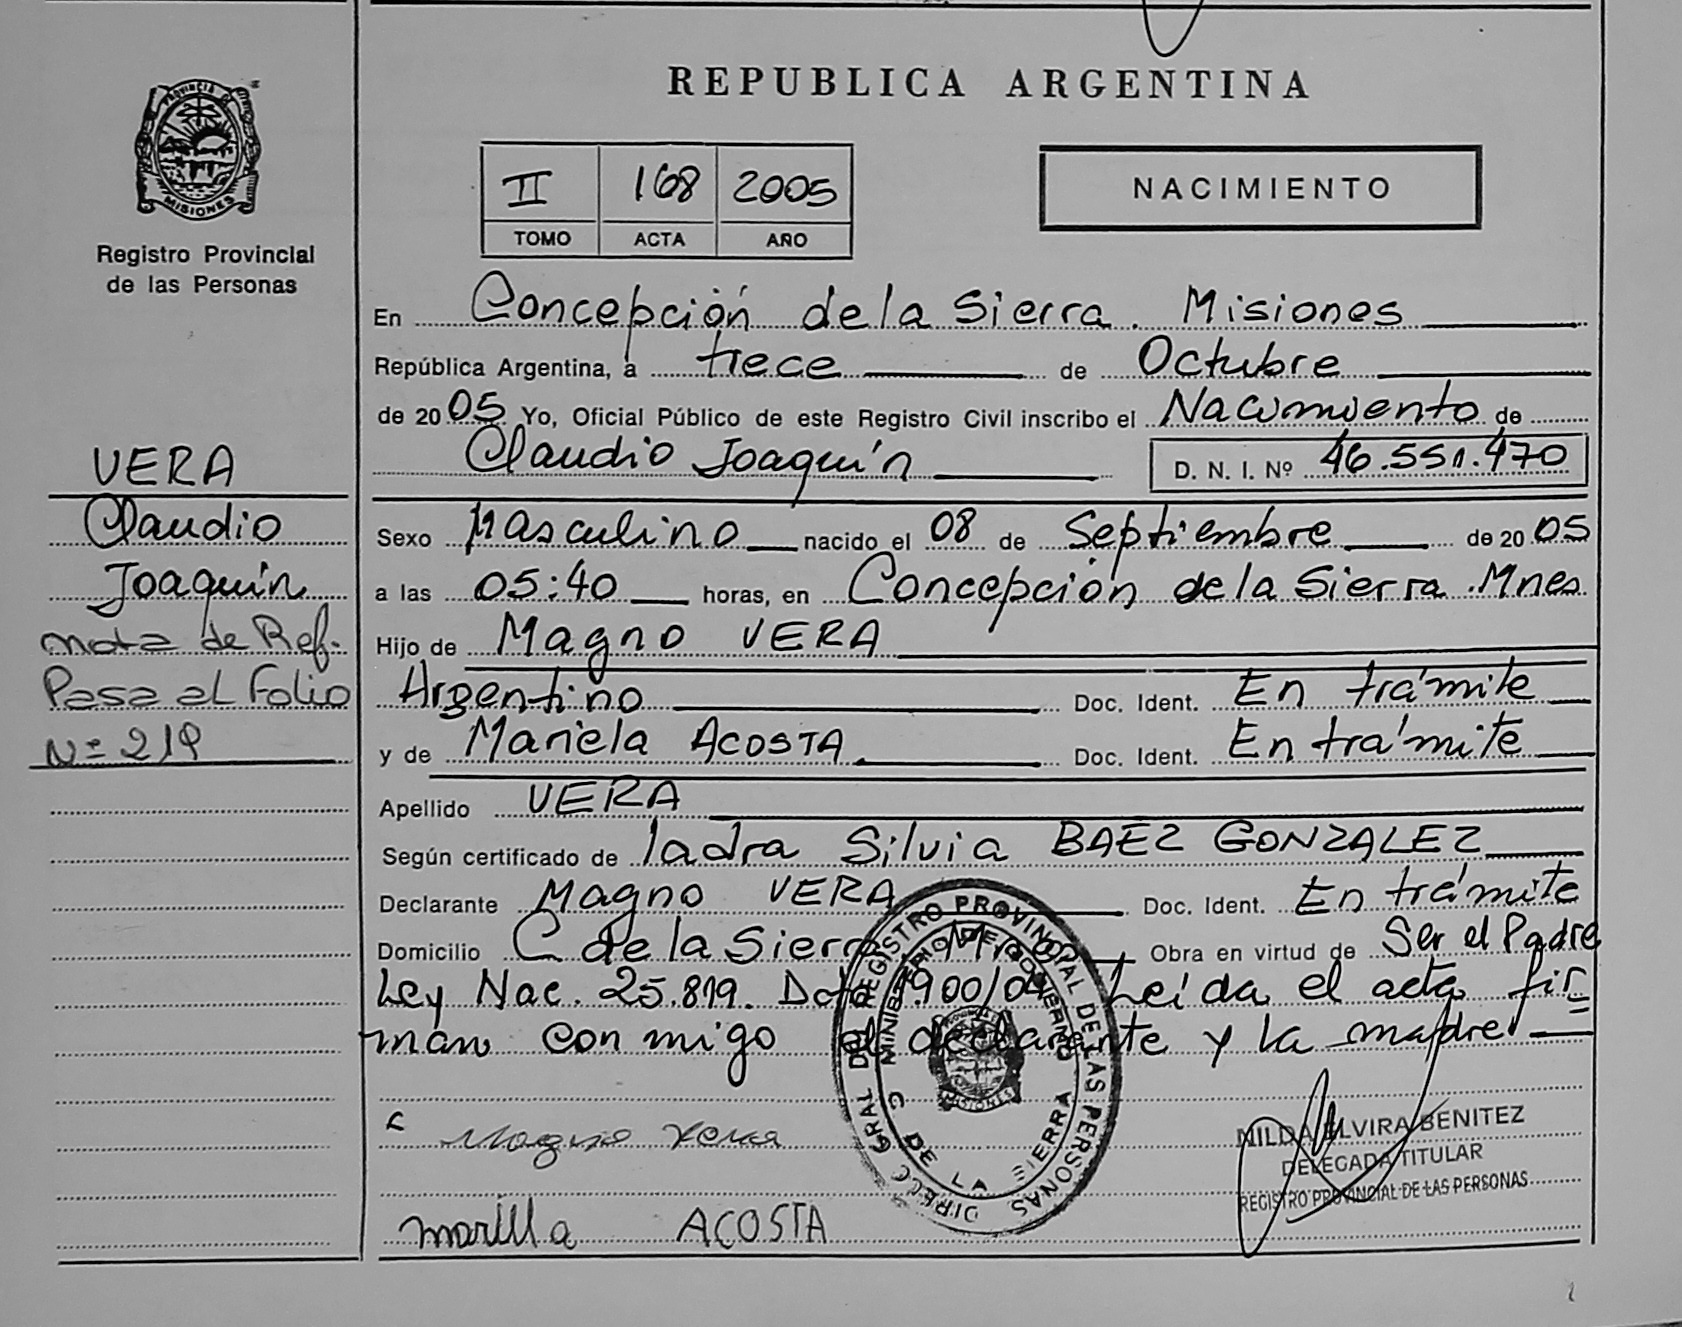 PROVINCIA DE
MISIONES
Registro Provincial
de las Personas
VERA
Claudio
Joaquín
nota de Ref.
Pasa al Folio
Nº 219
REPUBLICA ARGENTINA
II 168 2005
TOMO ACTA AÑO
NACIMIENTO
En Concepción de la Sierra. Misiones
República Argentina, a trece de Octubre
de 2005 Yo, Oficial Público de este Registro Civil inscribo el Nacimiento de
Claudio Joaquín D. N. I. Nº 46.551.470
Sexo Masculino nacido el 08 de Septiembre de 2005
a las 05:40 horas, en Concepción de la Sierra. Mnes.
Hijo de Magno VERA
Argentino Doc. Ident. En trámite
y de Mariela ACOSTA Doc. Ident. En trámite
Apellido VERA
Según certificado de ladra Silvia BAEZ GONZALEZ
Declarante Magno VERA Doc. Ident. En trámite
Domicilio C. de la Sierra Obra en virtud de Ser el Padre
Ley Nac. 25.819. 1900/04 Leída el acta fir=
man conmigo el declarante y la madre
Magno Vera
marilla ACOSTA
DIRECC GRAL DEL REGISTRO PROVINCIAL DE LAS PERSONAS
MINISTERIO DE GOBIERNO
C DE LA SIERRA
MISIONES
MILDA ELVIRA BENITEZ
DELEGADA TITULAR
REGISTRO PROVINCIAL DE LAS PERSONAS